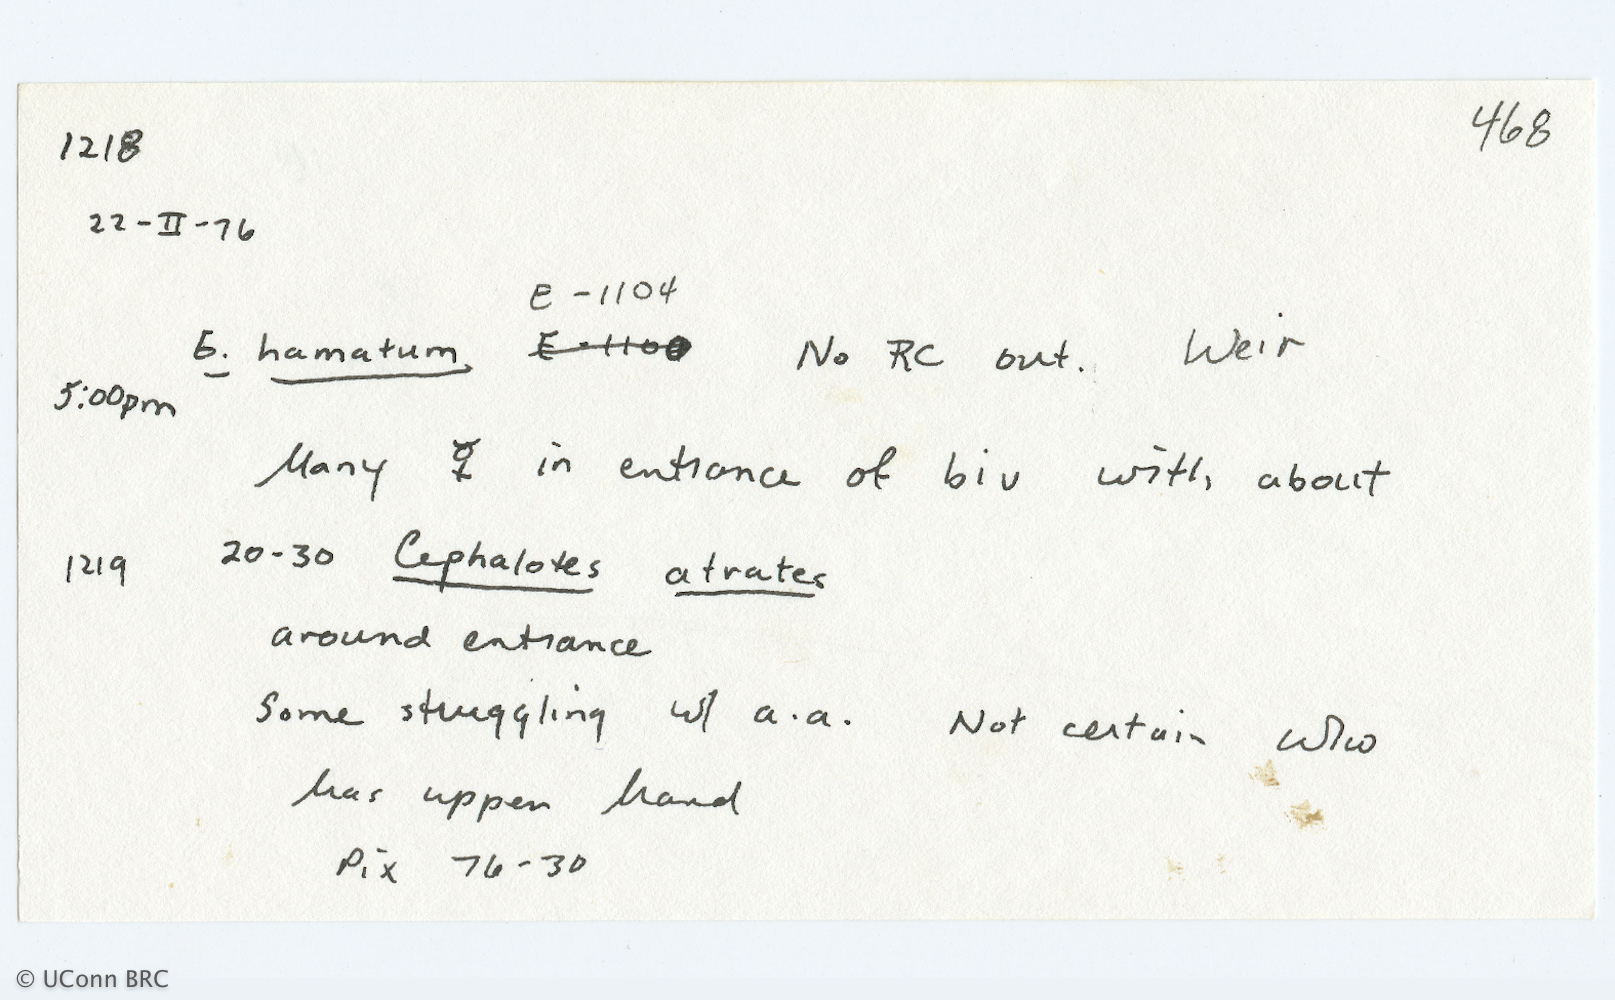 1218
468
22-II-76
E-1104
E. hamatum E-1100 No RC out. Weir
5:00pm
Many ☿ in entrance of biv with about
1219 20-30 Cephalotes atrates
around entrance
Some struggling w/ a.a. Not certain who
has upper hand
Pix 76-30
© UConn BRC